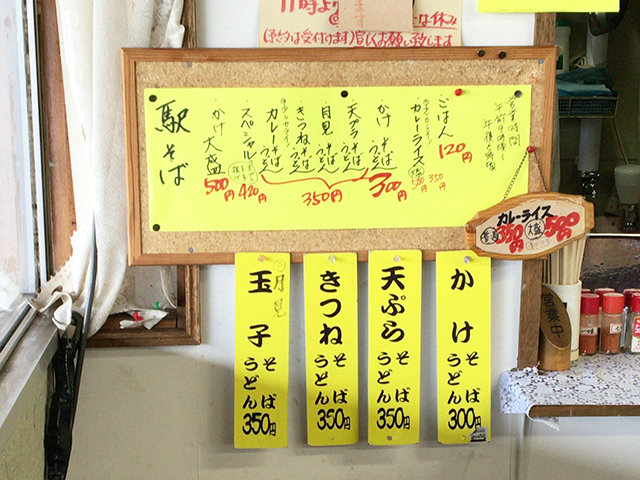 11時より
な休み
(予約は受付けます)宜しくお願い致します
営業時間
午前9時〜
午後6時頃
ごはん 120円
カレーライス 350円
かけ そば うどん 300円
天プラ そば うどん
月見 そば うどん
きつね そば うどん
350円
カレー そば うどん
スペシャル 420円
かけ大盛 500円
駅そば
カレーライス
普通 350円
大盛 500円
かけ そば うどん 300円
天ぷら そば うどん 350円
きつね そば うどん 350円
月見
玉子 そば うどん 350円
営業中